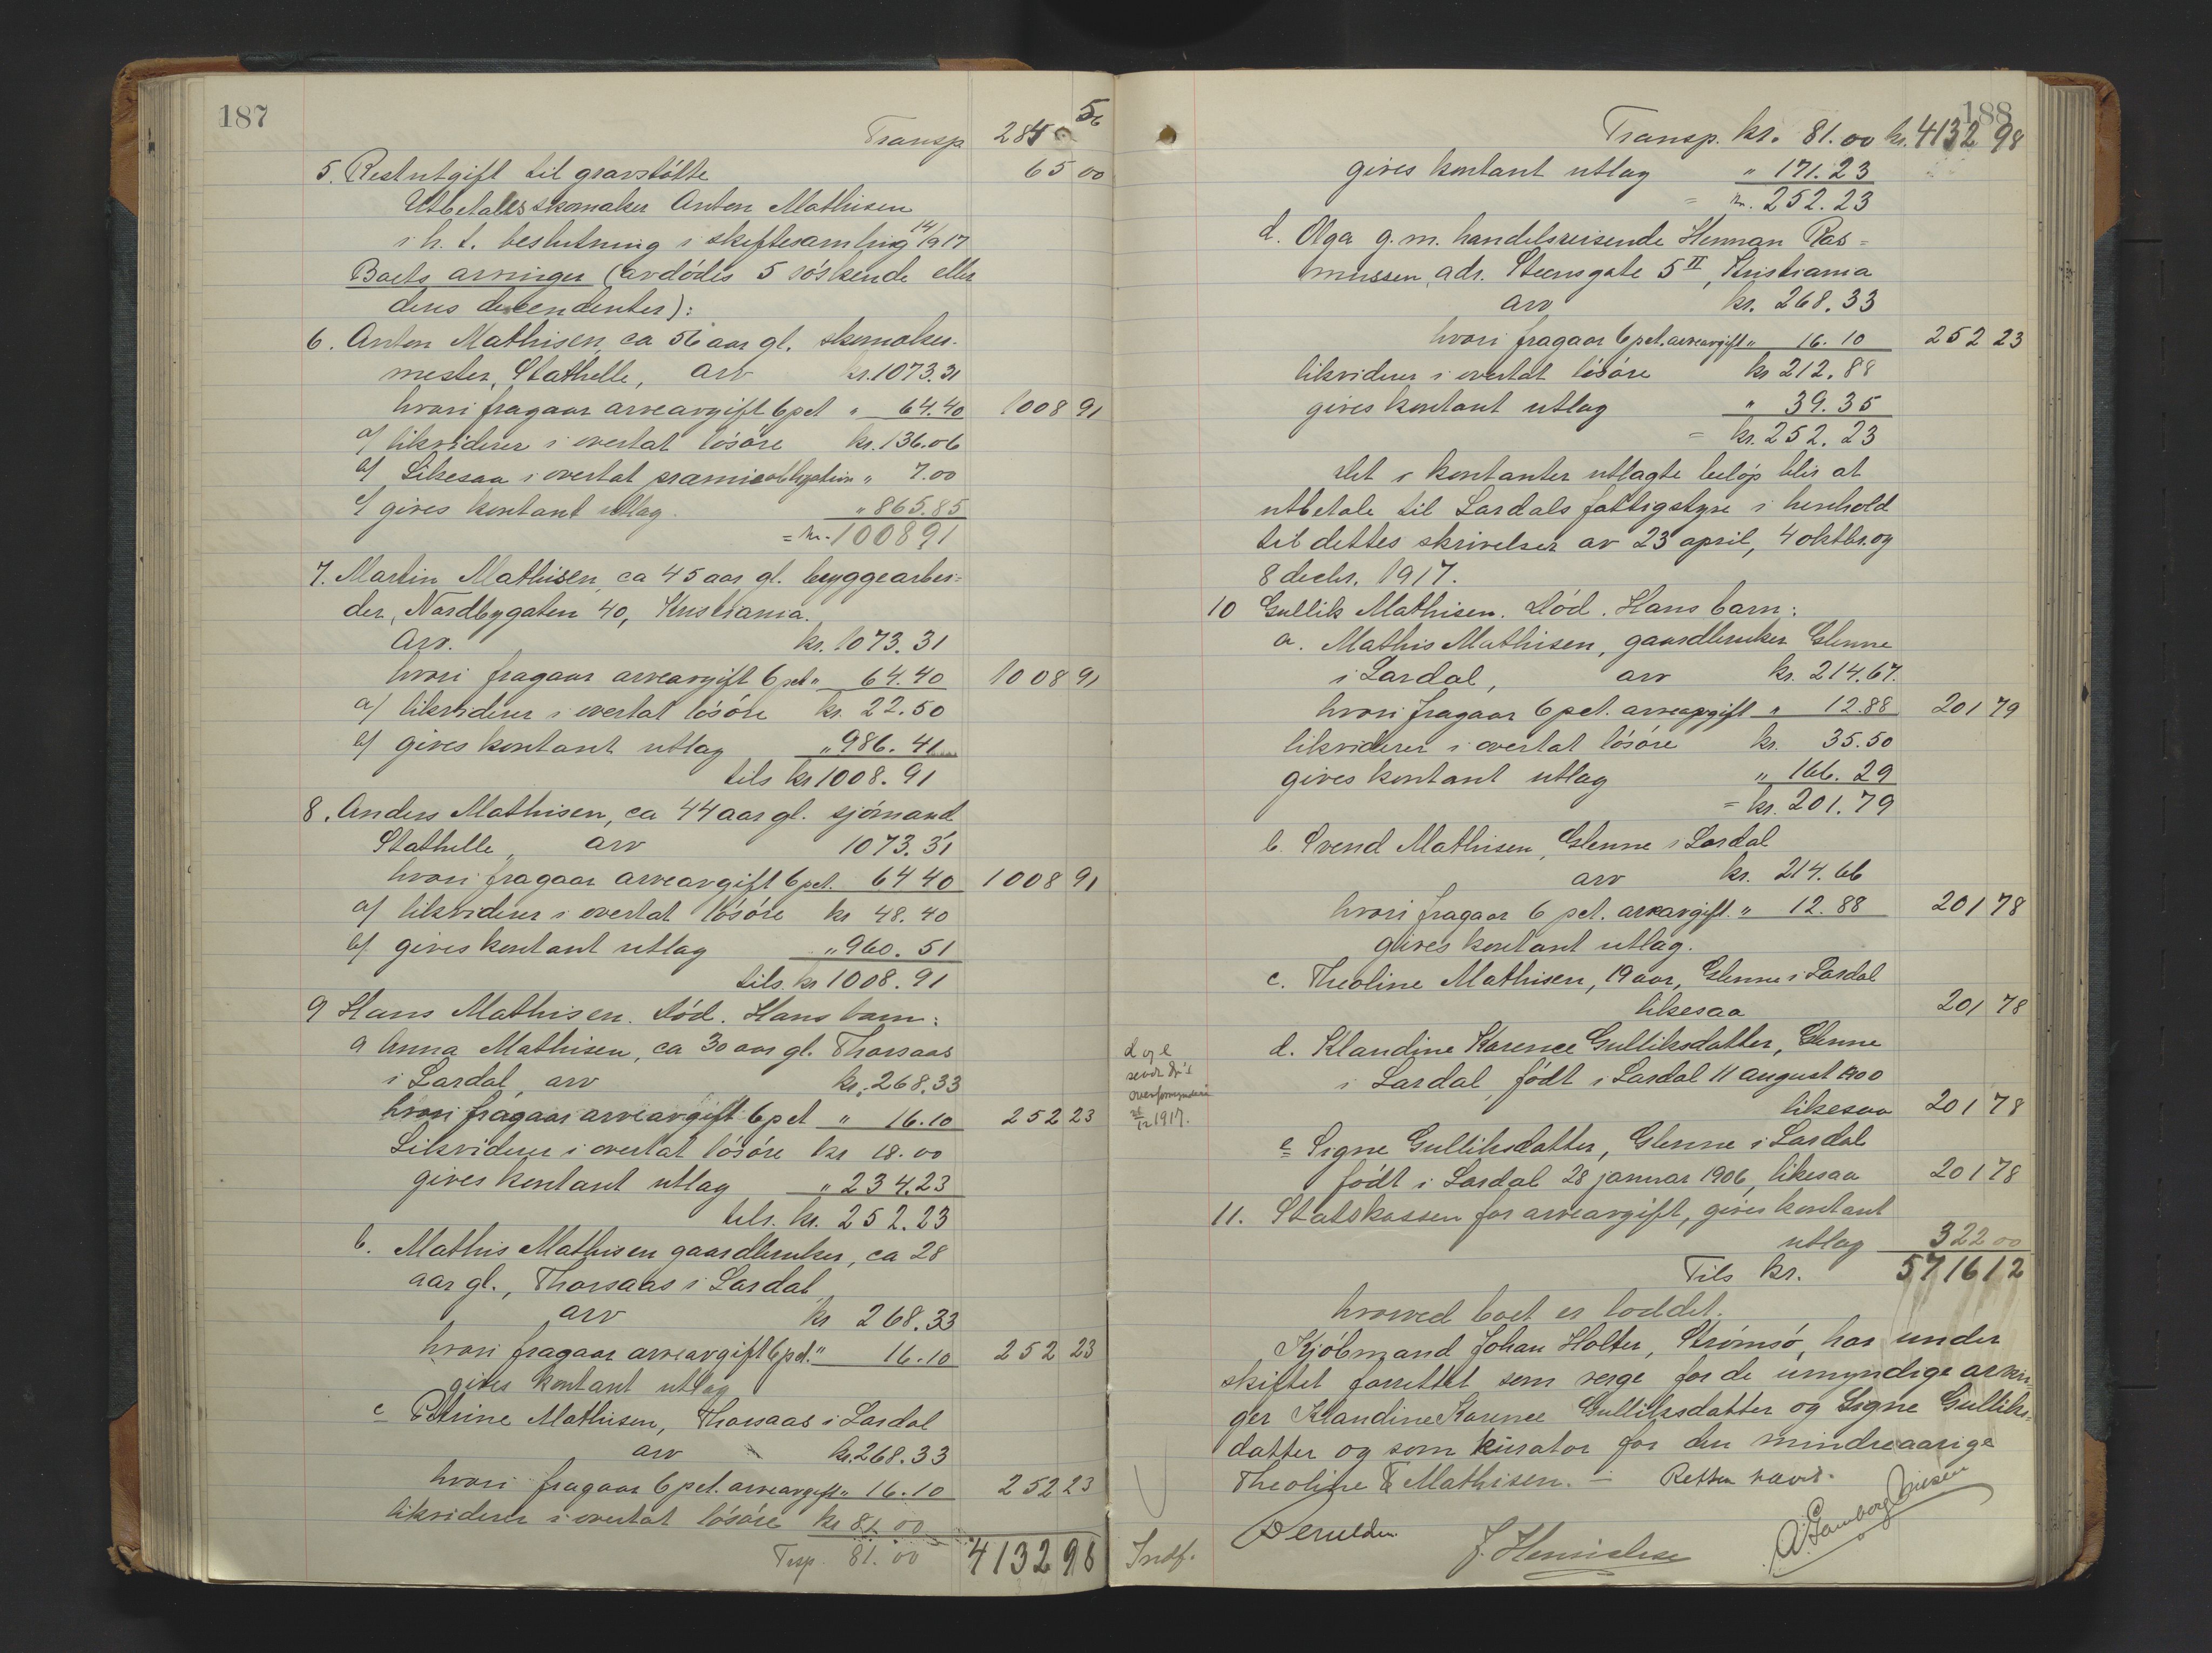 187
56
Transp. 284
5. Restutgift til gravstötte 65 00
Utbetales skomaker Anton Mathisen
i h. t. beslutning i skiftesamling 14/9 17
Boets arvinger (avdödes 5 söskende eller
deres decendenter):
6. Anton Mathisen, ca 56 aar gl. skomaker-
mester, Stathelle, arv kr. 1073.31
hvori fragaar arveavgift 6 pct " 64.40 1008 91
a/ likviderer i overtat lösöre kr. 136.06
b/ Likesaa i overtat præmieobligation " 7.00
c/ gives kontant utlag. " 865.85
= kr. 1008 91
7. Martin Mathisen, ca 45 aar gl. byggearbei-
der, Nordbygaten 40, Kristiania.
Arv. kr. 1073.31
hvori fragaar arveavgift 6 pct " 64.40 1008 91
a/ likviderer i overtat lösöre kr. 22.50
b/ gives kontant utlag " 986.41
tils kr 1008.91
8. Anders Mathisen, ca 44 aar gl. sjömand
Stathelle, arv 1073.31
hvori fragaar arveavgift 6 pct. 64 40 1008 91
a/ likviderer i overtat lösöre kr 48.40
b/ gives kontant utlag " 960.51
tils. kr 1008.91
9 Hans Mathisen. Död. Hans barn:
a Anna Mathisen, ca 30 aar gl. Thorsaas
i Lardal, arv kr. 268.33
hvori fragaar arveavgift 6 pct " 16.10 252 23
Likviderer i overtat lösöre kr 18.00
gives kontant utlag " 234.23
tils. kr. 252.23
b. Mathis Mathisen gaardbruker, ca 28
aar gl., Thorsaas i Lardal,
arv kr 268.33
hvori fragaar arveavgift 6 pct. " 16.10 252 23
gives kontant utlag
c Petrine Mathisen, Thorsaas i Lardal
arv kr. 268.33
hvori fragaar 6 pct. arveavgift " 16.10 252 23
likviderer i overtat lösöre kr 81.00
Trsp. 81.00 4132 98
188
Transp. kr. 81.00 kr. 4132 98
gives kontant utlag " 171.23
= kr. 252.23
d. Olga g. m. handelsreisende Herman Ras=
mussen, adr. Steensgate 5 II, Kristiania
arv kr. 268.33
hvori fragaar 6 pct. arveavgift " 16.10 252 23
likviderer i overtat lösöre kr 212.88
gives kontant utlag " 39.35
= kr. 252.23
Det i kontanter utlagte belöp blir at
utbetale til Lardals fattigstyre i henhold
til dettes skrivelser av 23 april, 4 oktbr. og
8 decbr. 1917.
10 Gullik Mathisen. Död. Hans barn:
a. Mathis Mathisen, gaardbruker Glenne
i Lardal, arv kr. 214.67.
hvori fragaar 6 pct. arveavgift " 12.88 201 79
likviderer i overtat lösöre kr. 35.50
gives kontant utlag " 166.29
= kr. 201.79
b. Svend Mathisen, Glenne i Lardal
arv kr. 214.66
hvori fragaar 6 pct. arveavgift. " 12.88 201 78
gives kontant utlag.
c. Theoline Mathisen, 19 aar, Glenne i Lardal
likesaa 201 78
d og e
sendt
overformynderi
1917.
d. Klandine Karence Gulliksdatter, Glenne
i Lardal, födt i Lardal 11 august 1900
likesaa 201 78
e Signe Gulliksdatter, Glenne i Lardal
födt i Lardal 28 januar 1906, likesaa 201 78
11. Statskassen for arveavgift, gives kontant
utlag 322 00
Tils kr. 5716 12
hvorved boet er loddet.
Kjöbmand Johan Holter, Strömsö, har under
skiftet forrettet som verge for de umyndige arvin-
ger Klandine Karence Gulliksdatter og Signe Gulliks-
datter og som kurator for den mindreaarige
Theoline Mathisen. – Retten hævet.
Indf.